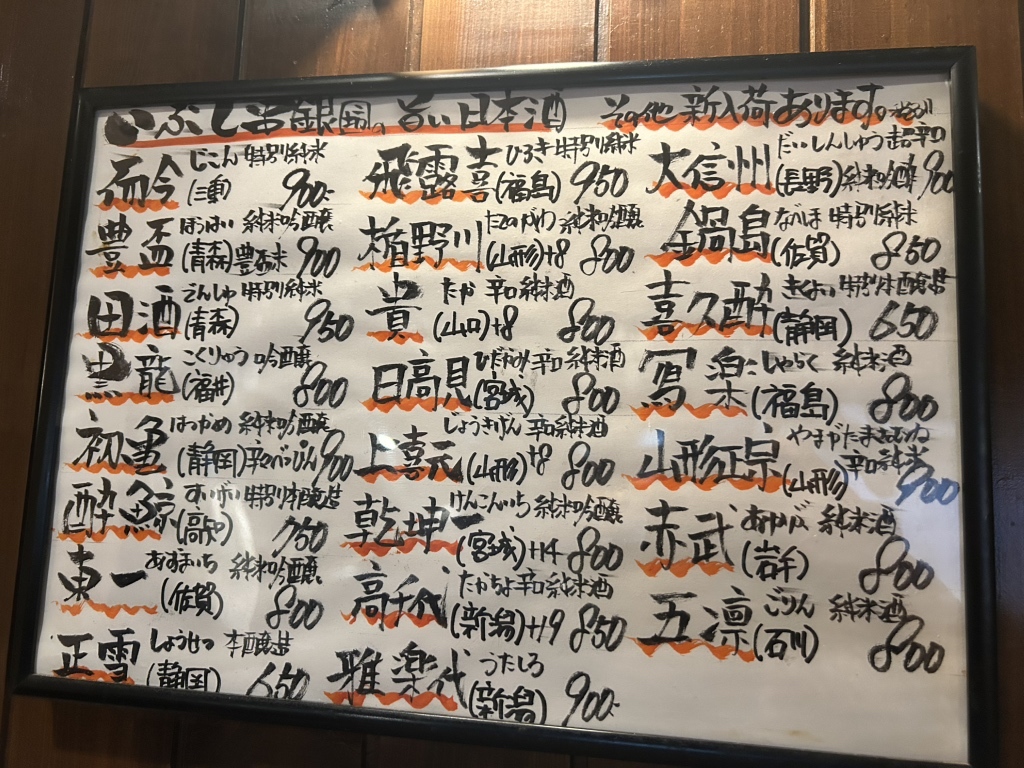 いぶし銀 の 旨い日本酒 その他 新入荷あります。
而今 じこん 特別純米
(三重) 900-
豊盃 ほうはい 純米吟醸
(青森) 豊盃米 900
田酒 でんしゅ 特別純米
(青森) 950
黒龍 こくりゅう 吟醸
(福井) 800
初亀 はつかめ 純米吟醸
(静岡) 900
酔鯨 すいげい 特別本醸造
(高知) 750
東一 あずまいち 純米吟醸
(佐賀) 800
正雪 しょうせつ 本醸造
(静岡) 650
飛露喜 ひろき 特別純米
(福島) 950
楯野川 たてのがわ 純米吟醸
(山形)+8 800
貴 たか 辛口純米酒
(山口)+8 800
日高見 ひたかみ 辛口純米酒
(宮城) 800
上喜元 じょうきげん 辛口純米酒
(山形)+8 800
乾坤一 けんこんいち 純米吟醸
(宮城)+4 800
高千代 たかちよ 辛口純米酒
(新潟)+19 850
雅楽代 うたしろ
(新潟) 900-
大信州 だいしんしゅう 超辛口
(長野) 純米吟醸 900
鍋島 なべしま 特別純米
(佐賀) 850
喜久酔 きくよい 特別本醸造
(静岡) 650
寫楽 しゃらく 純米酒
(福島) 800
山形正宗 やまがたまさむね
(山形) 辛口純米 900
赤武 あかぶ 純米酒
(岩手) 800
五凛 ごりん 純米酒
(石川) 800